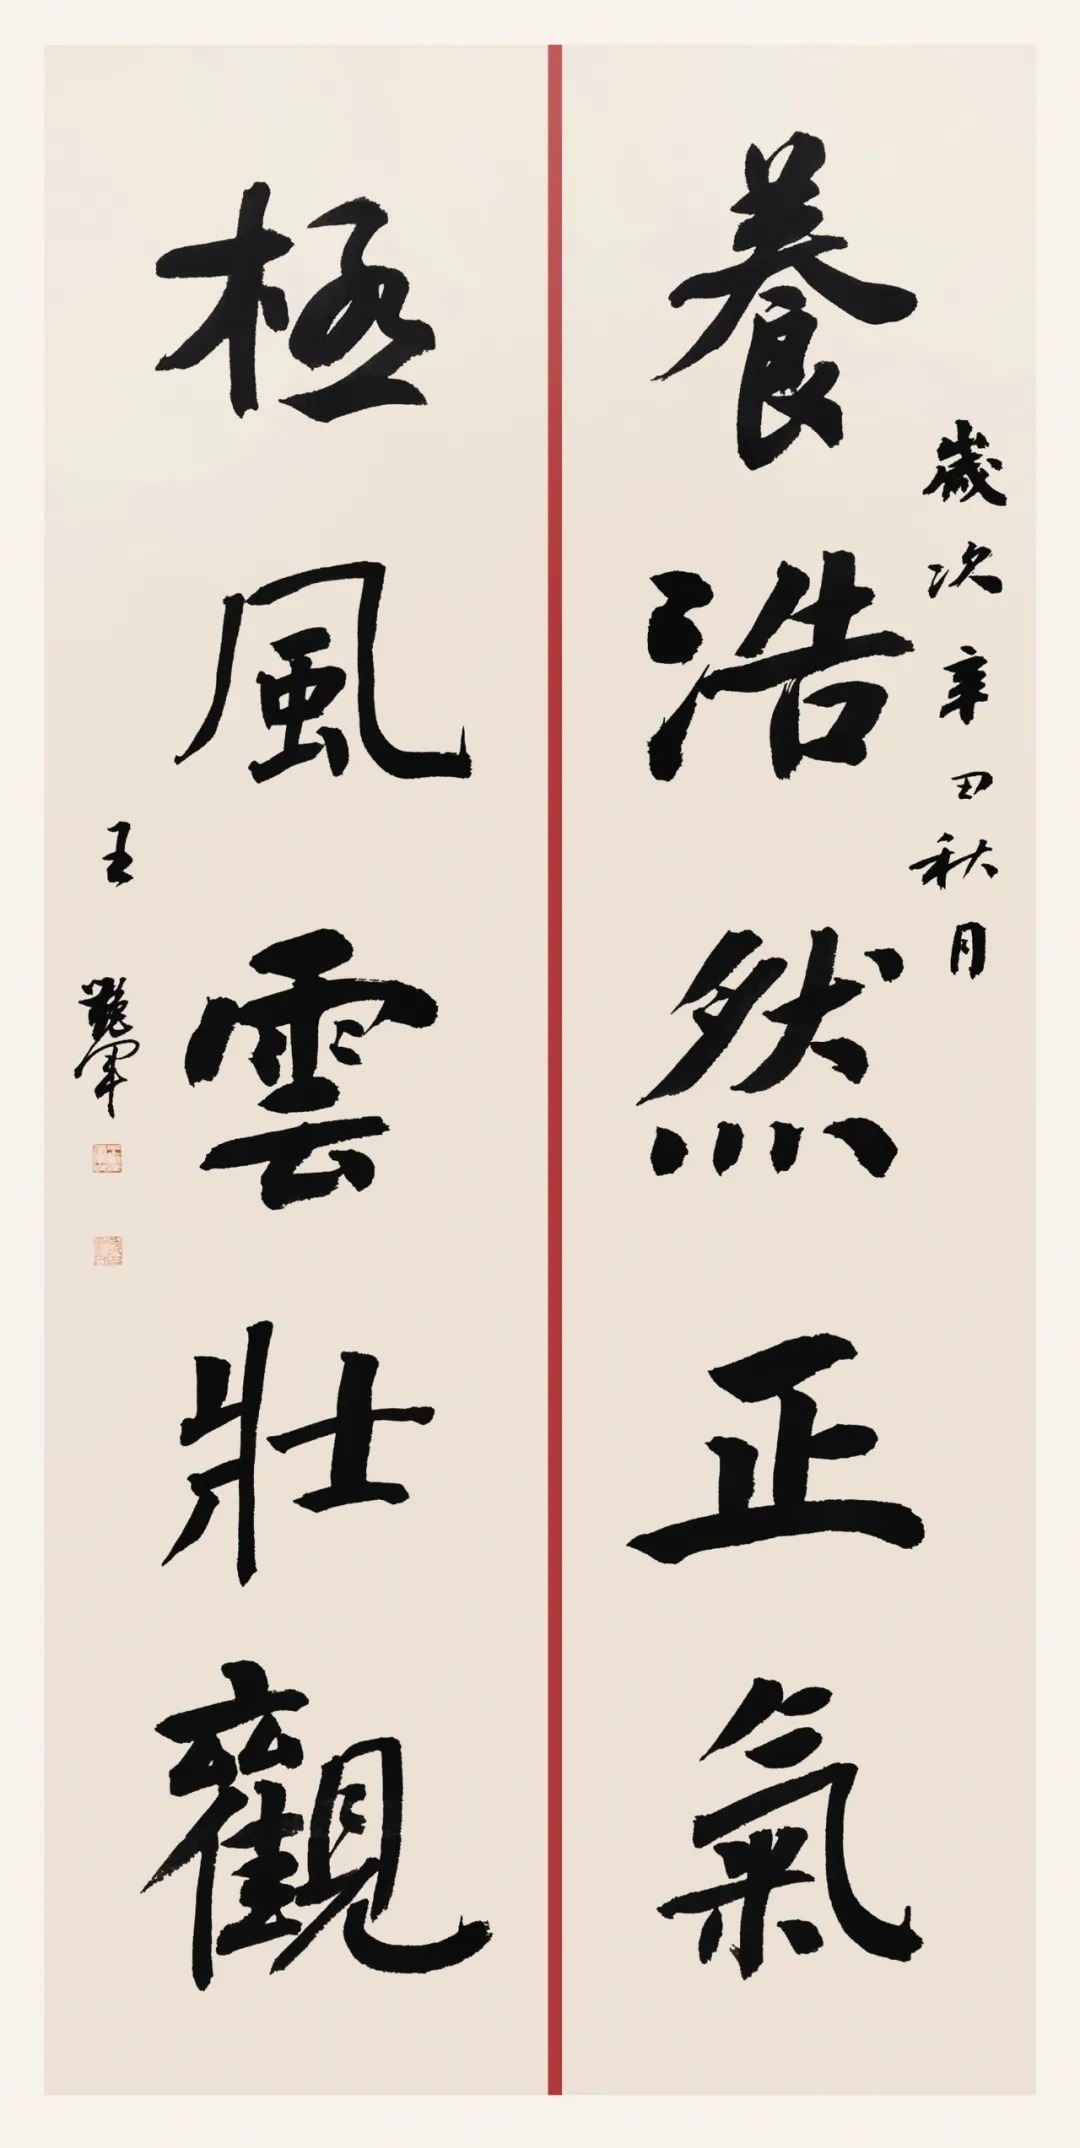 養浩然正氣
歲次辛丑秋月
極風雲壯觀
王艷軍